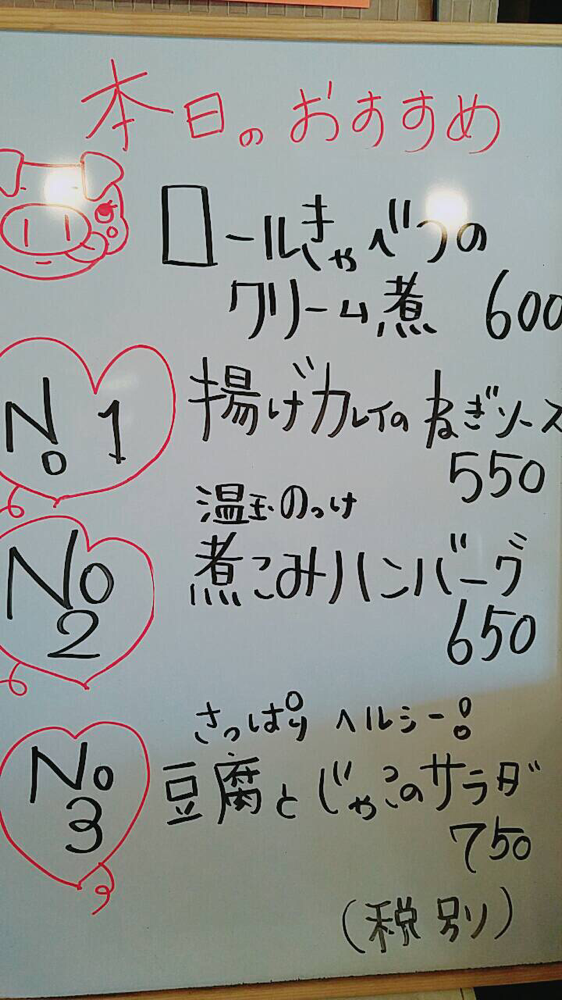 本日のおすすめ
ロールきゃべつの
クリーム煮 600
No 1
揚げカレイのねぎソース
550
温玉のっけ
No 2
煮こみハンバーグ
650
さっぱり ヘルシー!
No 3
豆腐とじゃこのサラダ
750
(税別)